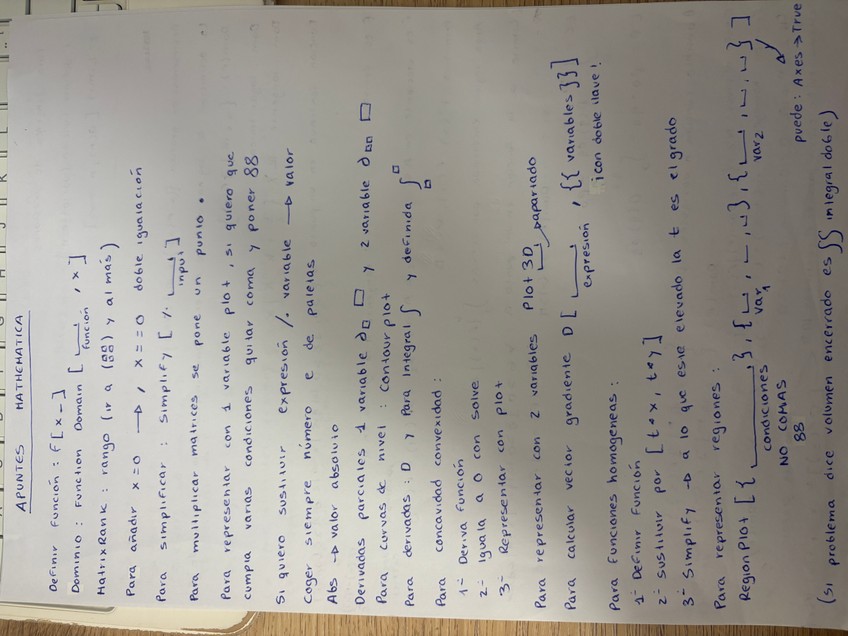 APUNTES MATHEMATICA
Definir función : f[x_]
Dominio : Function Domain [ ⎵ , x ]
función
MatrixRank : rango (ir a (88/88) y al más)
Para añadir x=0 → , x==0 doble igualación
Para simplificar : Simplify [ %. ⎵ ]
input
Para multiplicar matrices se pone un punto •
Para representar con 1 variable plot , si quiero que
cumpla varias condiciones quitar coma y poner &&
Si quiero sustituir expresión /. variable → valor
Coger siempre número e de paletas
Abs → valor absoluto
Derivadas parciales 1 variable ∂□ □ y 2 variable ∂□□ □
Para curvas de nivel : Contour plot
Para derivadas : D y Para Integral ∫ y definida ∫□□
Para concavidad convexidad :
1º Deriva función
2º Iguala a 0 con solve
3º Representar con plot
Para representar con 2 variables Plot 3D → apartado
Para calcular vector gradiente D [ ⎵ , {{ variables }}]
expresión
¡con doble llave!
Para funciones homogeneas :
1º Definir función
2º Sustituir por [t*x, t*y]
3º Simplify → a lo que este elevado la t es el grado
Para representar regiones :
RegionPlot [{ ⎵ }, {⎵, ⎵, ⎵}, {⎵, ⎵, ⎵} ]
condiciones var1 var2
NO COMAS
&& puede : Axes → True
(si problema dice volumen encerrado es ∬ integral doble)